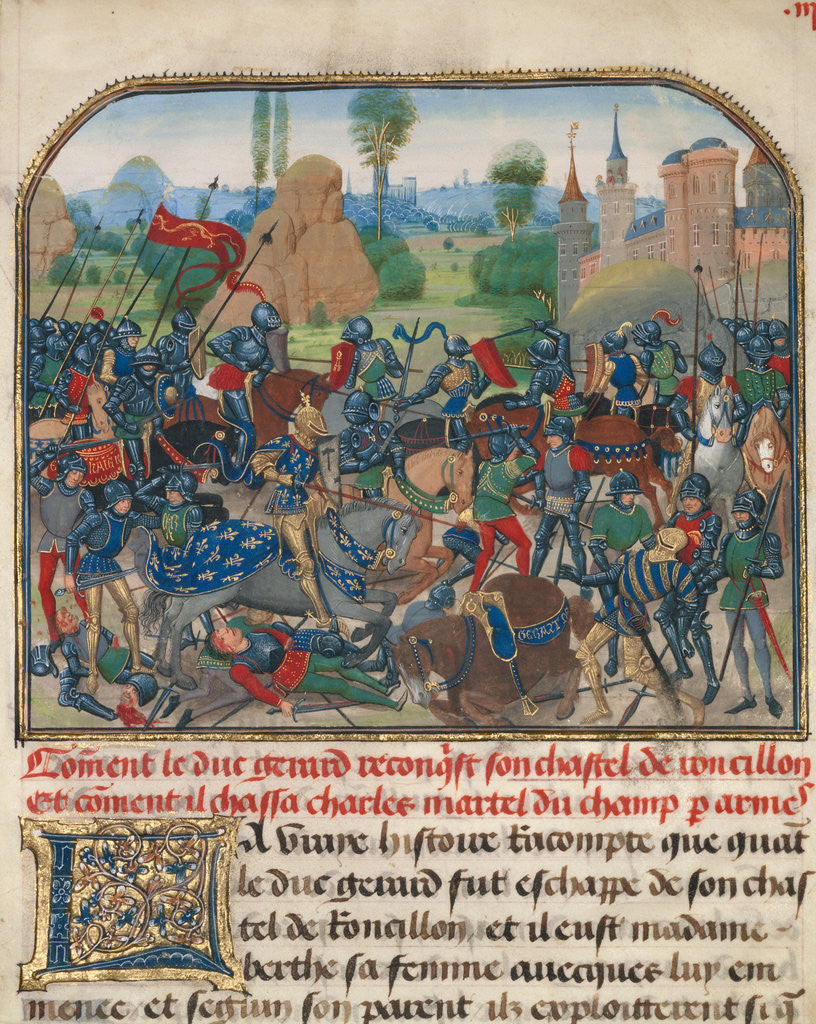 .m
Com̃ent le duc gerard reconq̃st son chastel de roncillon
Et com̃ent il chassa charles martel du champ p armes
LA vraye histoire Racompte que quãt
le duc gerard fut eschappe de son chas
tel de Roncillon, et il eust madame -
berthe sa femme avecques luy em
menee et seguin son parent ilz exploitterent si q̃